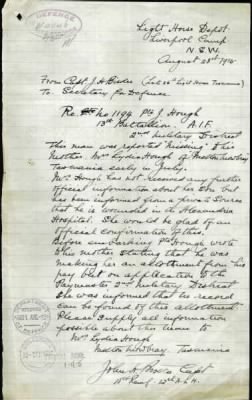 DEFENCE
Light Horse Depot
Liverpool Camp
N.S.W.
August 28th 1915
From Capt. J. H.
To Secretary for Defence
Re No 1194 Pte J. Hough
13th Battalion. A.I.F.
2nd Military District
This man was reported "missing" to his
Mother, Mrs Lydia Hough of
Tasmania early in
Mrs Hough has not received any further
official information about her son but
has been informed from a private source
that he is wounded in the Alexandria
Hospital. She would be glad of an
official confirmation of this.
Before embarking Pte Hough wrote
to his mother stating that he was
making her an allotment from his
pay but on application to the
Paymaster, 2nd Military District
she was informed that no record
can be found of this allotment.
Please supply all information
possible about this item to
Mrs Lydia Hough
Tasmania
John H. Capt
12th A.L.H.